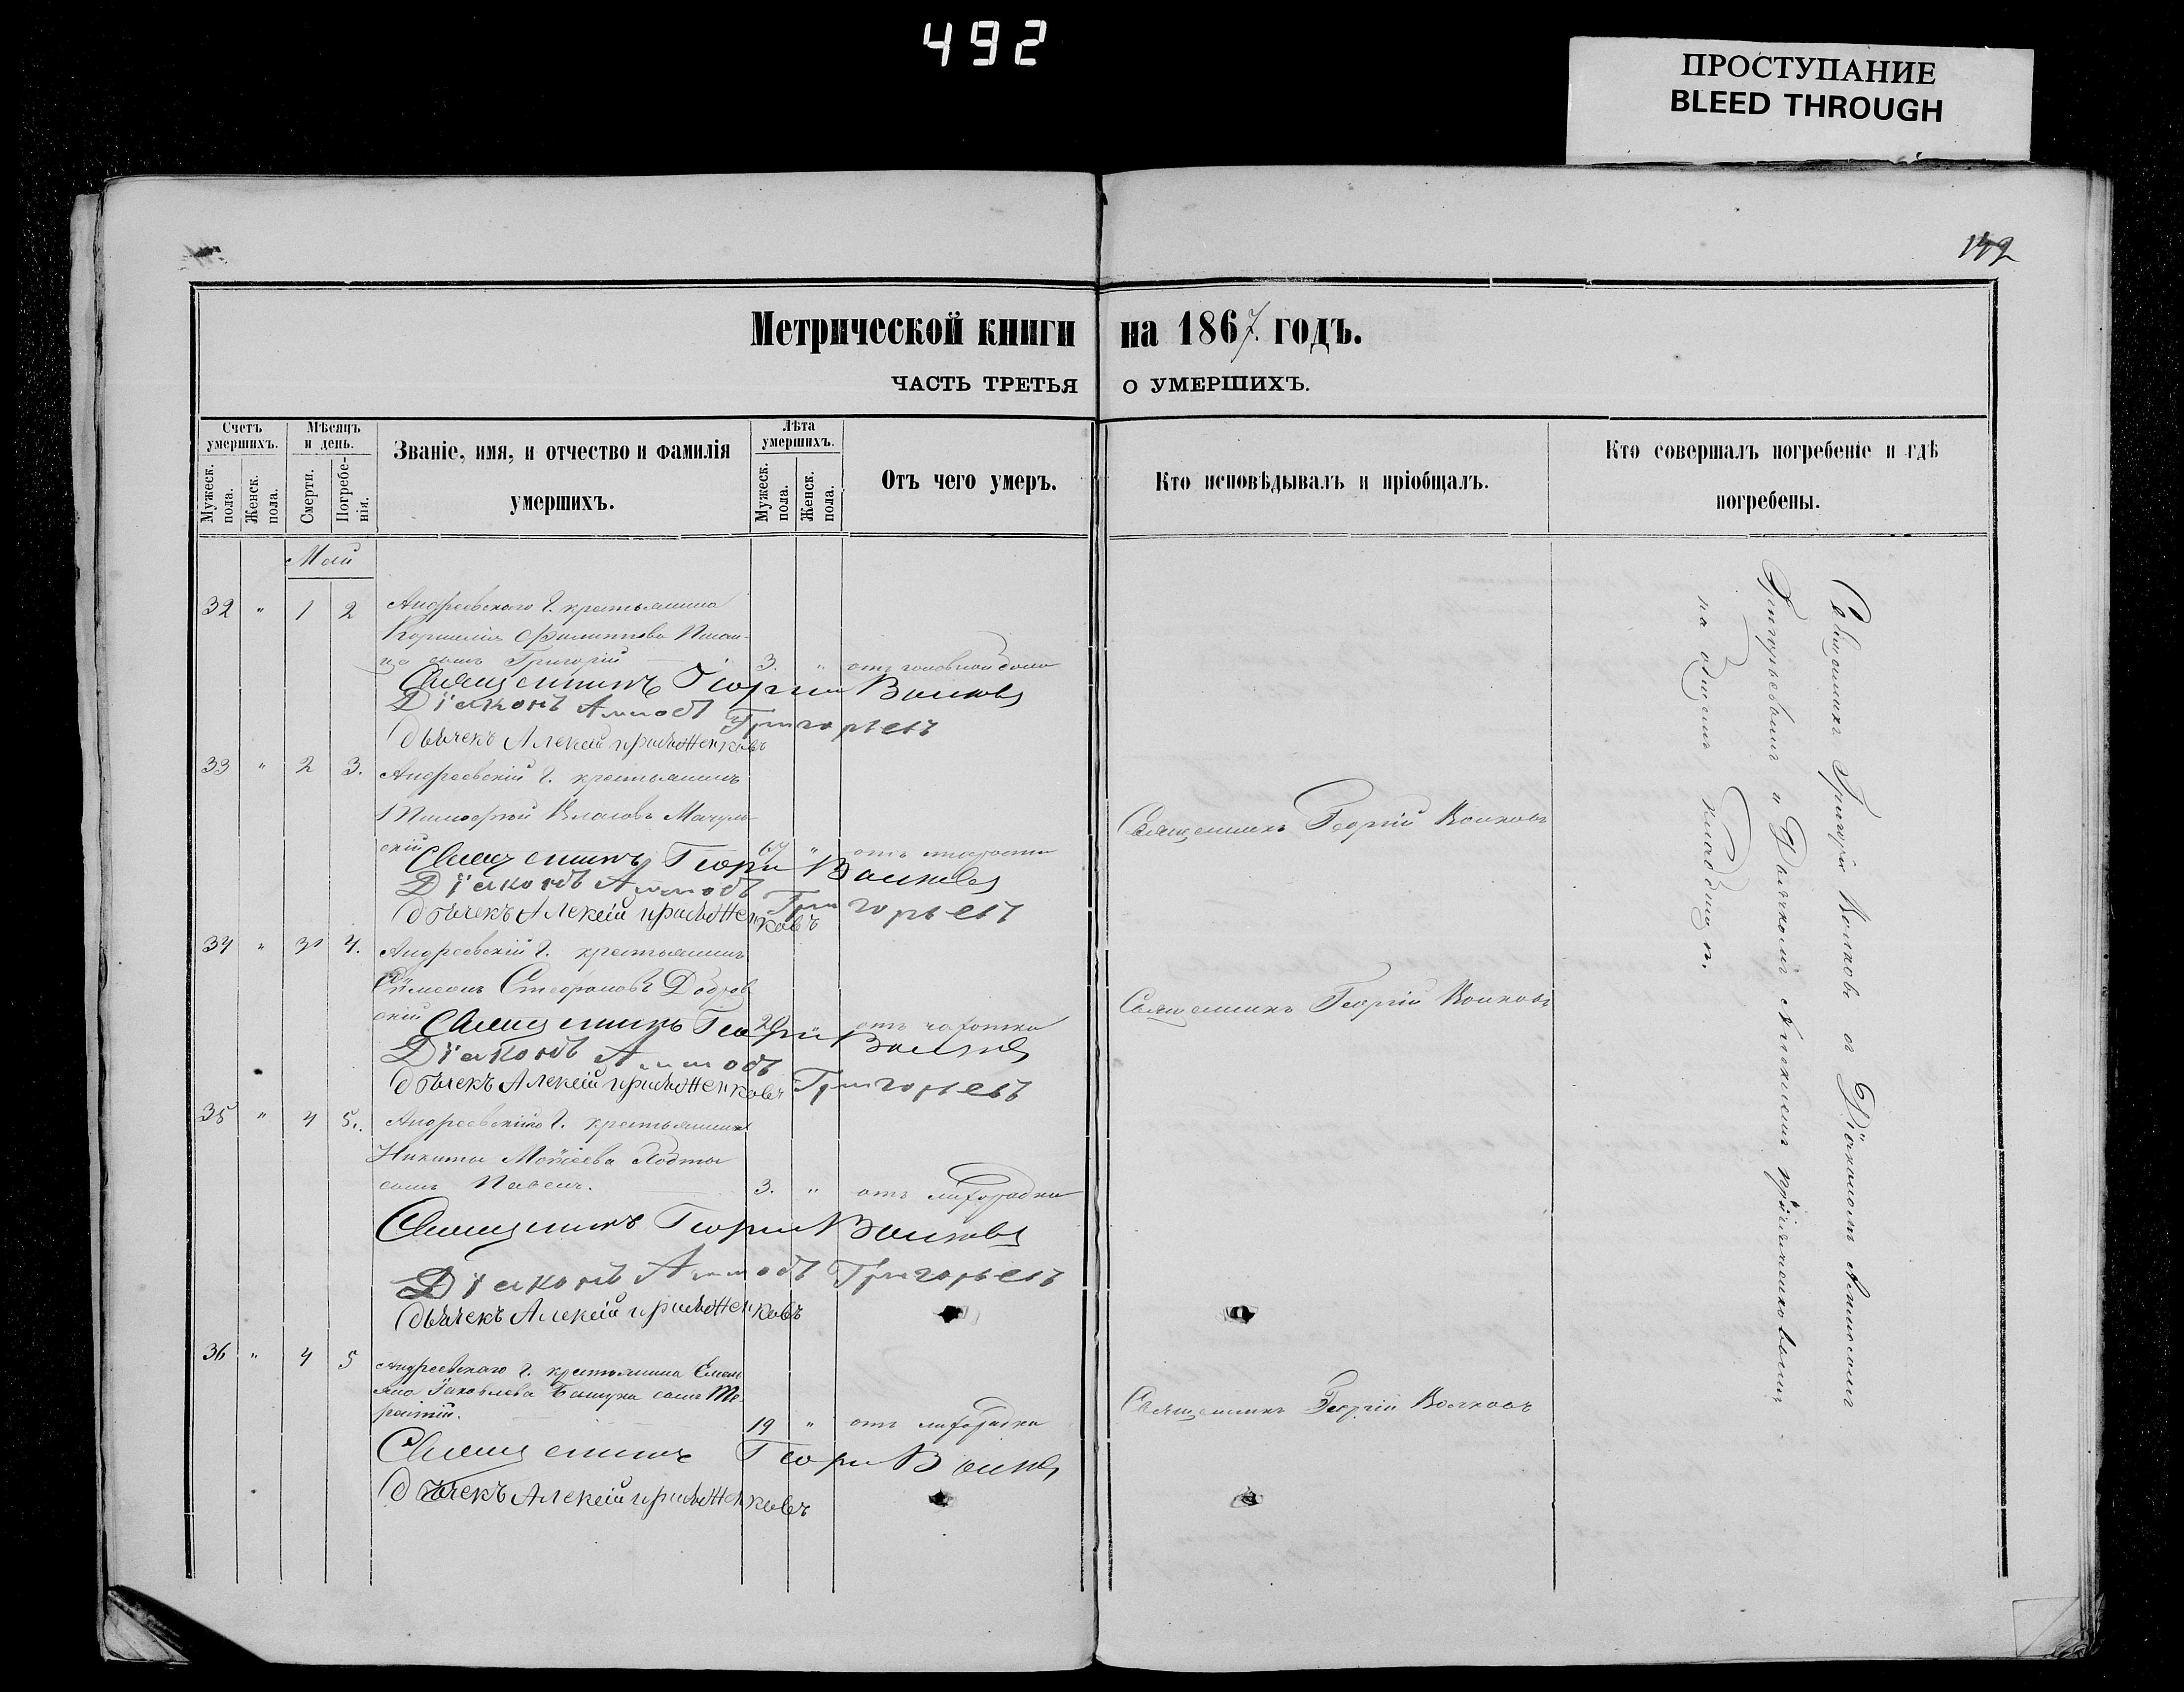 492
ПРОСТУПАНИЕ
BLEED THROUGH
142
Метрической книги на 1867. годъ.
ЧАСТЬ ТРЕТЬЯ О УМЕРШИХЪ.
Счетъ умершихъ.
Мужеск. пола.
Женск. пола.
Мѣсяцъ и день.
Смерти.
Погребенія.
Званіе, имя, и отчество и фамилія
умершихъ.
Лѣта умершихъ.
Мужеск. пола.
Женск. пола.
Отъ чего умеръ.
Кто исповѣдывалъ и пріобщалъ.
Кто совершалъ погребеніе и гдѣ
погребены.
Май
32 " 1 2 Андреевскаго г. крестьянина
Корнилія Филиппова
сынъ Григорій 3. " отъ головной боли
Священникъ Георгій Волковъ
Діаконъ Григорьевъ
Дьячекъ Алексій
33 " 2 3. Андреевскій г. крестьянинъ
Тимофей Власовъ Мачуль-
скій 67 " отъ старости
Священникъ Георгій Волковъ
Діаконъ Григорьевъ
Дьячекъ Алексій
Священникъ Георгій Волковъ
34 " 3 4. Андреевскій г. крестьянинъ
Симеонъ Стефановъ Добров
скій " отъ чахотки
Священникъ Георгій Волковъ
Діаконъ Григорьевъ
Дьячекъ Алексій
Священникъ Георгій Волковъ
35 " 4 5. г. крестьянина
Никиты Моисеева
сынъ Павелъ. 3. " отъ лихорадки
Священникъ Георгій Волковъ
Діаконъ Григорьевъ
Дьячекъ Алексій
36 " 4 5 Андреевскаго г. крестьянина Емель
яна Іаковлева сынъ Те-
рентій. 19 " отъ лихорадки
Священникъ Георгій Волковъ
Дьячекъ Алексій
Священникъ Георгій Волковъ
Священникъ Волковъ съ Діакономъ
Григорьевымъ и Дьячкомъ Алексіемъ
на общемъ кладбищѣ.